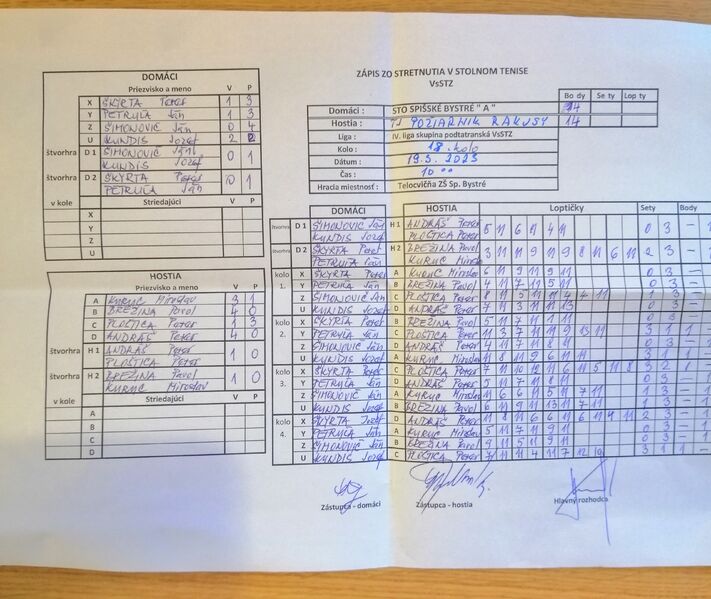 ZÁPIS ZO STRETNUTIA V STOLNOM TENISE
VsSTZ
Bo dy Se ty Lop ty
Domáci : STO SPIŠSKÉ BYSTRÉ " A "
Hostia : TJ POŽIARNIK RAKUSY 14
Liga : IV. liga skupina podtatranská VsSTZ
Kolo : 18. kolo
Dátum : 19.3.2023
Čas : 10 00
Hracia miestnosť : Telocvičňa ZŠ Sp. Bystré
DOMÁCI
Priezvisko a meno V P
X ŠKYRTA Peter 1 3
Y PETRUĽA Ján 1 3
Z ŠIMONOVIČ Ján 0 4
U KUNDIS Jozef 2 2
štvorhra D 1 ŠIMONOVIČ Ján 0 1
KUNDIS Jozef
štvorhra D 2 ŠKYRTA Peter 0 1
PETRUĽA Ján
v kole Striedajúci
X
Y
Z
U
HOSTIA
Priezvisko a meno V P
A KURUC Miroslav 3 1
B BREZINA Pavol 4 0
C PLOŠTICA Peter 1 3
D ANDRÁŠ Peter 4 0
štvorhra H 1 ANDRÁŠ Peter 1 0
PLOŠTICA Peter
štvorhra H 2 BREZINA Pavol 1 0
KURUC Miroslav
v kole Striedajúci
A
B
C
D
DOMÁCI HOSTIA Loptičky Sety Body
štvorhra D 1 ŠIMONOVIČ Ján H 1 ANDRÁŠ Peter 5 11 6 11 4 11 0 3 – 1
KUNDIS Jozef PLOŠTICA Peter
štvorhra D 2 ŠKYRTA Peter H 2 BREZINA Pavol 3 11 11 9 11 9 8 11 6 11 2 3 –
PETRUĽA Ján KURUC Miroslav
kolo 1. X ŠKYRTA Peter A KURUC Miroslav 6 11 9 11 9 11 0 3 –
Y PETRUĽA Ján B BREZINA Pavol 4 11 7 11 5 11 0 3 –
Z ŠIMONOVIČ Ján C PLOŠTICA Peter 8 11 5 11 11 4 4 11 1 3 –
U KUNDIS Jozef D ANDRÁŠ Peter 7 11 3 11 11 13 0 3 –
kolo 2. X ŠKYRTA Peter B BREZINA Pavol 5 11 7 11 1 11 0 3 –
Y PETRUĽA Ján C PLOŠTICA Peter 11 3 7 11 11 9 13 11 3 1 1 –
Z ŠIMONOVIČ Ján D ANDRÁŠ Peter 0 3 –
U KUNDIS Jozef A KURUC Miroslav 11 8 11 9 6 11 11 3 1 1
kolo 3. X ŠKYRTA Peter C PLOŠTICA Peter 7 11 10 12 11 6 11 5 11 8 3 2 1
Y PETRUĽA Ján D ANDRÁŠ Peter 5 11 7 11 8 11 0 3 –
Z ŠIMONOVIČ Ján A KURUC Miroslav 11 6 6 11 5 11 7 11 1 3 –
U KUNDIS Jozef B BREZINA Pavol 6 11 9 11 13 11 7 11 1 3 –
kolo 4. X ŠKYRTA D ANDRÁŠ Peter 11 8 11 6 6 11 6 11 4 11 2 3 –
Y PETRUĽA Ján A KURUC Miroslav 5 11 7 11 9 11 0 3 –
Z ŠIMONOVIČ Ján B BREZINA Pavol 9 11 5 11 9 11 0 3 –
U KUNDIS Jozef C PLOŠTICA Peter 7 11 11 4 11 7 12 10 3 1 1
Zástupca - domáci Zástupca - hostia Hlavný rozhodca